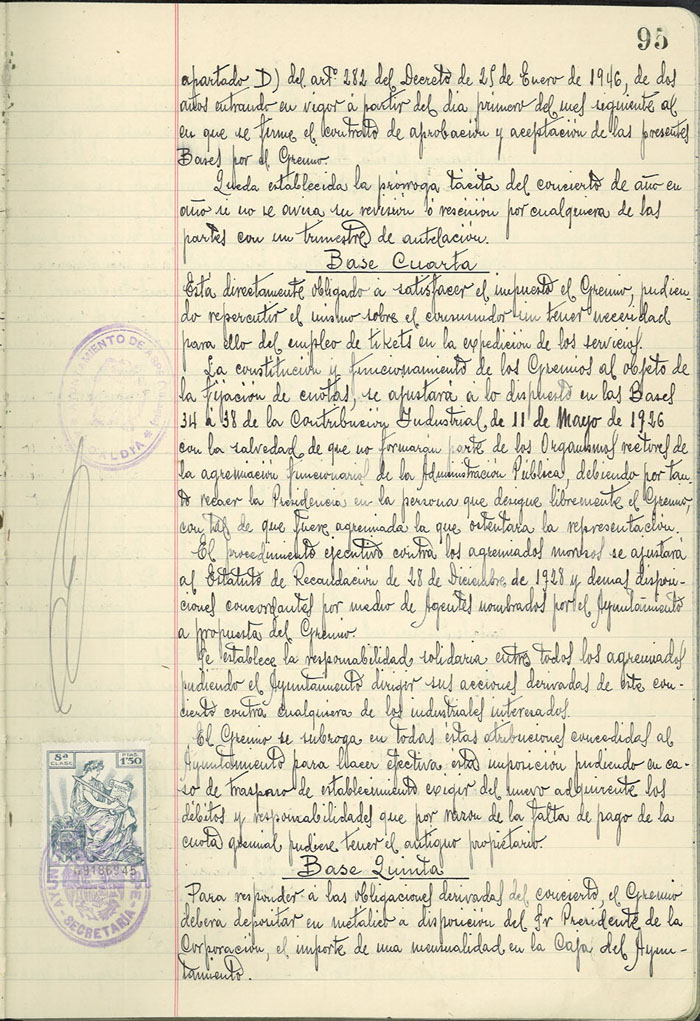 95
apartado D) del artº 282 del Decreto de 25 de Enero de 1946, de dos
años entrando en vigor á partir del dia primero del mes siguiente al
en que se firme el contrato de aprobación y aceptación de las presentes
Bases por el Gremio.
Queda establecida la prórroga tácita del concierto de año en
año si no se avisa su revisión ó rescisión por cualquiera de las
partes con un trimestre de antelación.
Base Cuarta
Está directamente obligado á satisfacer el impuesto el Gremio, pudien
do repercutir el mismo sobre el consumidor sin tener necesidad
para ello del empleo de tikets en la expedición de los servicios.
La constitución y funcionamiento de los Gremios al objeto de
la fijación de cuotas, se ajustará á lo dispuesto en las Bases
34 á 38 de la Contribución Industrial de 11 de Mayo de 1926
con la salvedad de que no formarán parte de los Organismos rectores de
la agremiación funcionarios de la Administración Pública, debiendo por tan
to recaer la Presidencia en la persona que designe libremente el Gremio,
con tal de que fuere agremiada la que ostentara la representación.
El procedimiento ejecutivo contra los agremiados morosos se ajustará
al Estatuto de Recaudación de 28 de Diciembre de 1928 y demas disposi-
ciones concordantes por medio de Agentes nombrados por el Ayuntamiento
a propuesta del Gremio.
Se establece la responsabilidad solidaria entre todos los agremiados
pudiendo el Ayuntamiento dirigir sus acciones derivadas de este con-
cierto contra cualquiera de los industriales interesados.
El Gremio se subroga en todas estas atribuciones concedidas al
Ayuntamiento para hacer efectiva esta imposición pudiendo en ca-
so de traspaso de establecimiento exigir del nuevo adquirente los
débitos y responsabilidades que por razon de la falta de pago de la
cuota gremial pudiese tener el antiguo propietario.
Base Quinta
Para responder á las obligaciones derivadas del concierto, el Gremio
deberá depositar en metálico á disposición del Sr Presidente de la
Corporación, el importe de una mensualidad en la Caja del Ayun-
tamiento.
AYUNTAMIENTO DE
ALCALDIA
8ª CLASE
PTAS. 1'50
SECRETARIA